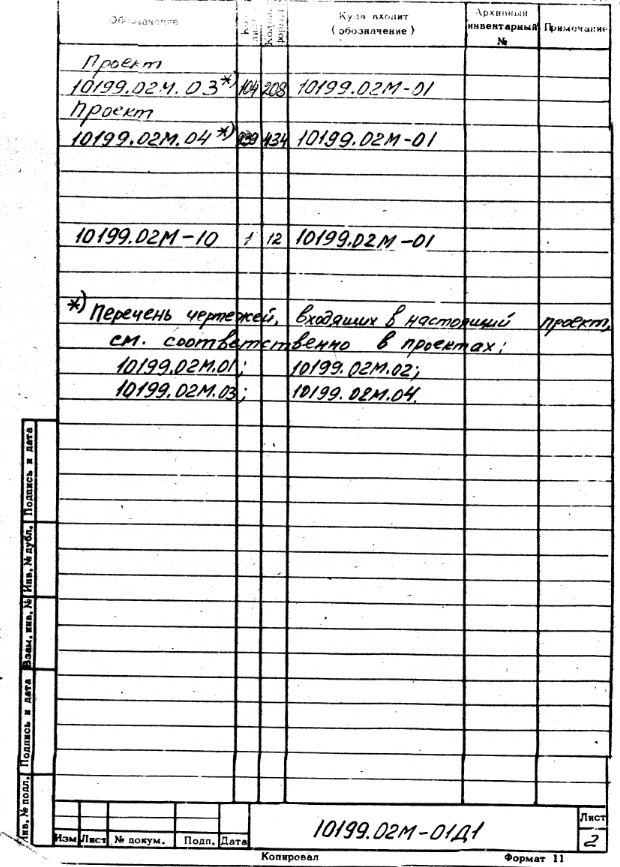 Обозначение Куда входит (обозначение) Архивный инвентарный № Примечание
Проект
10199.02М.03*) 104 208 10199.02М-01
Проект
10199.02М.04*) 434 10199.02М-01
10199.02М-10 1 12 10199.02М-01
*) Перечень чертежей, входящих в настоящий проект,
см. соответственно в проектах:
10199.02М.01; 10199.02М.02;
10199.02М.03; 10199.02М.04.
Подпись и дата
Инв. № дубл.
Взам. инв. №
Подпись и дата
Инв. № подл.
Изм Лист № докум. Подп. Дата
10199.02М-01Д1
Лист
2
Копировал Формат 11